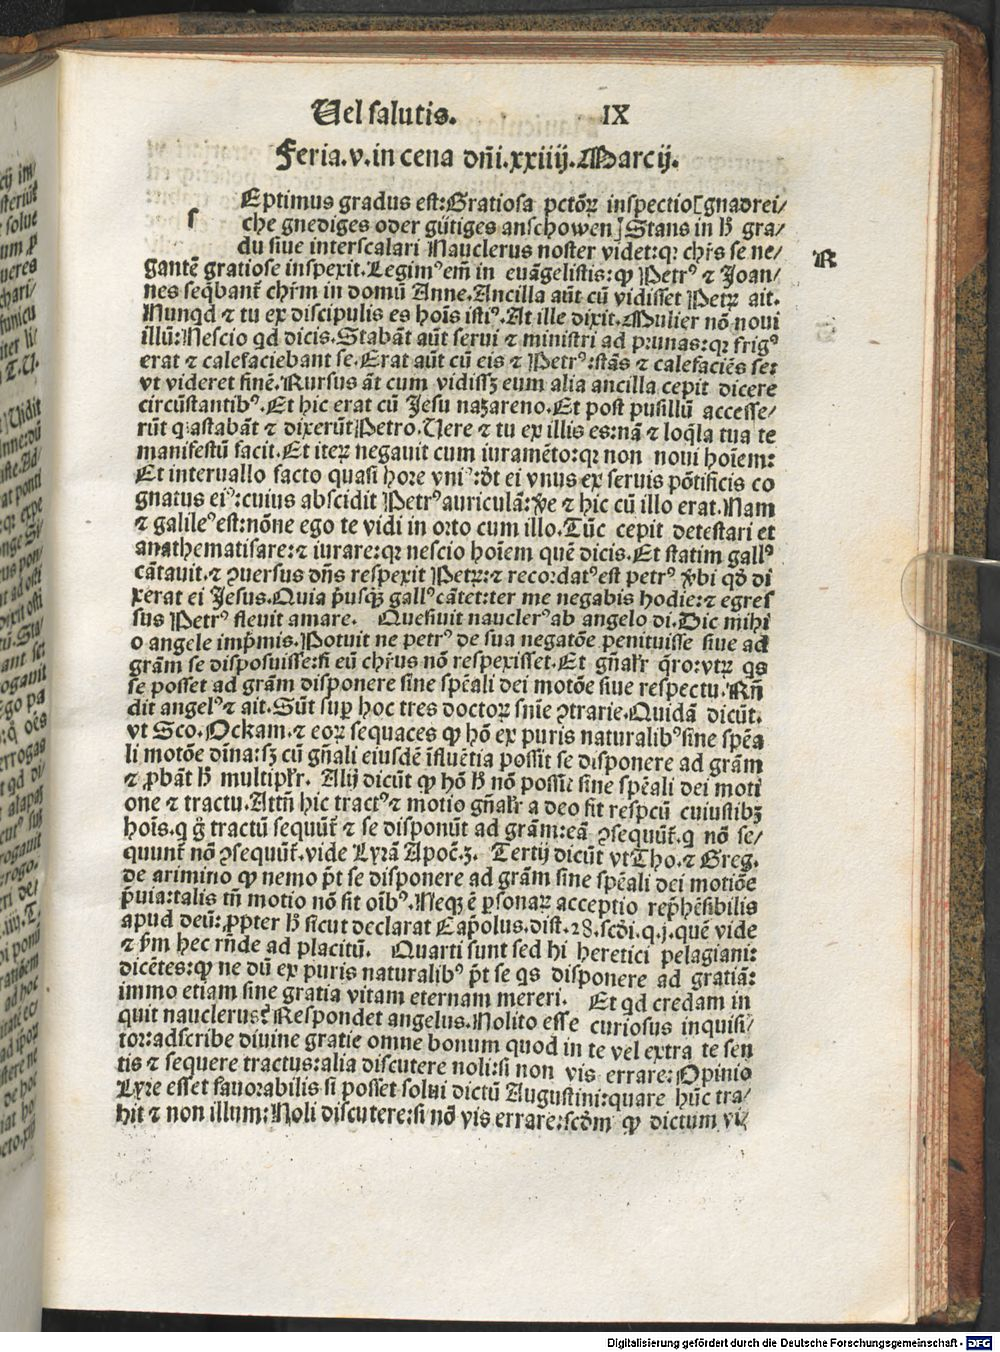 Uel salutis. IX
Feria.v.in cena dñi.xxiiij.Marcij.
s Eptimus gradus est:Gratiosa pctōꝝ inspectio[gnadrei/
che gnediges oder gütiges anschowen]Stans in hͦ gra/
du siue interscalari Nauclerus noster videt:qꝛ chr̄s se ne/
R
gantē gratiose inspexit.Legimꝰ em̄ in euāgelistis:ꝙ Petrꝰ ⁊ Joan/
nes seq̄bant̄ chr̄m in domū Anne.Ancilla aūt cū vidisset Petꝝ ait.
Nunqd ⁊ tu ex discipulis es hoīs istiꝰ.At ille dixit.Mulier nō noui
illū:Nescio qd dicis.Stabāt aūt serui ⁊ ministri ad prunas:qꝛ frigꝰ
erat ⁊ calefaciebant se.Erat aūt cū eis ⁊ Petrꝰ:stās ⁊ calefaciēs se:
vt videret finē.Rursus āt cum vidissꝫ eum alia ancilla cepit dicere
circūstantibꝰ.Et hic erat cū Jesu nazareno.Et post pusillū accesse/
rūt q astabāt ⁊ dixerūt Petro.Uere ⁊ tu ex illis es:nā ⁊ loq̄la tua te
manifestū facit.Et iteꝝ negauit cum iuramēto:qꝛ non noui hoīem:
Et interuallo facto quasi hore vniꝰ:dt̄ ei vnus ex seruis pōtificis co
gnatus eiꝰ:cuius abscidit Petrꝰ auriculā:v̄e ⁊ hic cū illo erat.Nam
⁊ galileꝰ est:nōne ego te vidi in orto cum illo.Tūc cepit detestari et
anathematisare:⁊ iurare:qꝛ nescio hoīem quē dicis.Et statim gallꝰ
cātauit.⁊ ꝯuersus dn̄s respexit Petꝝ:⁊ recordatꝰ est petrꝰ v̄bi qd̄ di
xerat ei Jesus.Quia p̄usqꝫ gallꝰ cātet:ter me negabis hodie:⁊ egres
sus Petrꝰ fleuit amare. Quesiuit nauclerꝰ ab angelo di.Dic mihi
o angele imp̄mis.Potuit ne petrꝰ de sua negatōe penituisse siue ad
grām se disposuisse:si eū chr̄us nō respexisset.Et gn̄alr̄ q̄ro:vtꝝ qs
se posset ad grām disponere sine spēali dei motōe siue respectu.Rn̄
dit angelꝰ ⁊ ait.Sūt suꝑ hoc tres doctoꝝ snīe ꝯtrarie.Quidā dicūt.
vt Sco.Ockam.⁊ eoꝝ sequaces ꝙ hō ex puris naturalibꝰ sine spēa
li motōe dīna:sꝫ cū gn̄ali eiusdē īfluētia possit se disponere ad grām
⁊ ꝓbāt hͦ multiplr̄. Alij dicūt ꝙ hō hͦ nō possit sine spēali dei moti
one ⁊ tractu.Attn̄ hic tractꝰ ⁊ motio gn̄alr̄ a deo fit respcū cuiuslibꝫ
hoīs.q g̊ tractū sequūt̄ ⁊ se disponūt ad grām:eā ꝯsequūt̄.q nō se/
quunt̄ nō ꝯsequūt̄.vide Lyrā Apoc̄.3. Tertij dicūt vt Tho.⁊ Greg.
de arimino ꝙ nemo p̄t se disponere ad grām sine spēali dei motiōe
p̄uia:talis tn̄ motio nō fit oībꝰ.Neqꝫ ē ꝑsonaꝝ acceptio rep̄hēsibilis
apud deū:ꝓpter hͦ sicut declarat Cap̄olus.dist.28.scd̄i.q.j.quē vide
⁊ p̄m hec rn̄de ad placitū. Quarti sunt sed hi heretici pelagiani:
dicētes:ꝙ ne dū ex puris naturalibꝰ p̄t se qs disponere ad gratiā:
immo etiam sine gratia vitam eternam mereri. Et qd credam in
quit nauclerus? Respondet angelus.Nolito esse curiosus inquisi/
tor:adscribe diuine gratie omne bonum quod in te vel extra te sen
tis ⁊ sequere tractus:alia discutere noli:si non vis errare:Opinio
Lyre esset fauorabilis si posset solui dictū Augustini:quare hūc tra/
hit ⁊ non illum:Noli discutere:si nō vis errare:scd̄m ꝙ dictum vi/
Digitalisierung gefördert durch die Deutsche Forschungsgemeinschaft - DFG